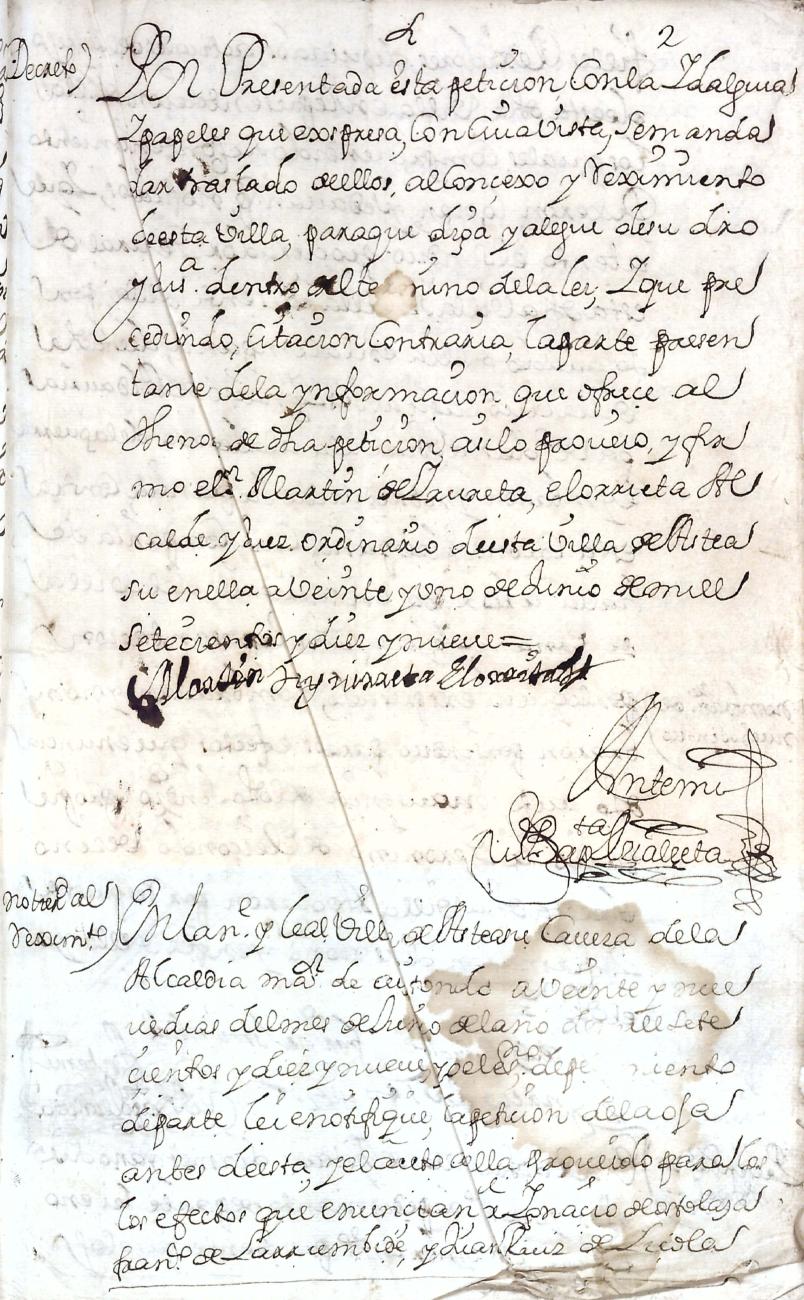 2
Decreto)
Por Presentada esta peticion Con la Ydalguia
Ypapeles que exspresa, Con Cuia Vista, se manda
dar traslado dellos, al Conçexo y Reximiento
deesta Villa, paraque diga y alegue desu dro
y Jusª. dentro del termino dela lei, Yque pre
cediendo, Citacion Contraria, laparte presen
tante dela ynformacion que ofrece al
thenor de dha peticion, asilo proveio, y fir
mo el Sr. Martin de Yrureta, elorrieta Al
calde y Juez ordinario deesta Villa de Astea
su enella a Veinte y uno de Junio de mill
setecientos y diez y nueve =
Martin Yrureta Elorrieta
Antemi
Bapta
notizn. al
Reximto.)
En la Ne. y leal Villa de Asteasu Cavera dela
Alcaldia mar. de aiztondo a Veinte y nue
ve dias del mes de Junio del año de mill sete
cientos y diez y nueve, yo el essno. de pedimiento
departe lei enotifique, lapeticion dela oja
antes deesta, y el auto aella proveido para los
los efectos que enuncian a Ygnacio de ostolaza
franco. de Larrumbide, y Juan Ruiz de Luzola